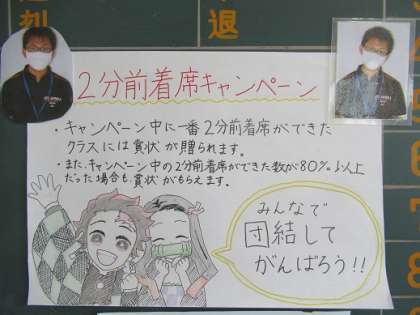 遅刻
早退
２分前着席キャンペーン
・キャンペーン中に一番２分前着席ができた
クラスには賞状が贈られます。
・また、キャンペーン中の２分前着席ができた数が80%以上
だった場合も賞状がもらえます。
みんなで
団結して
がんばろう!!